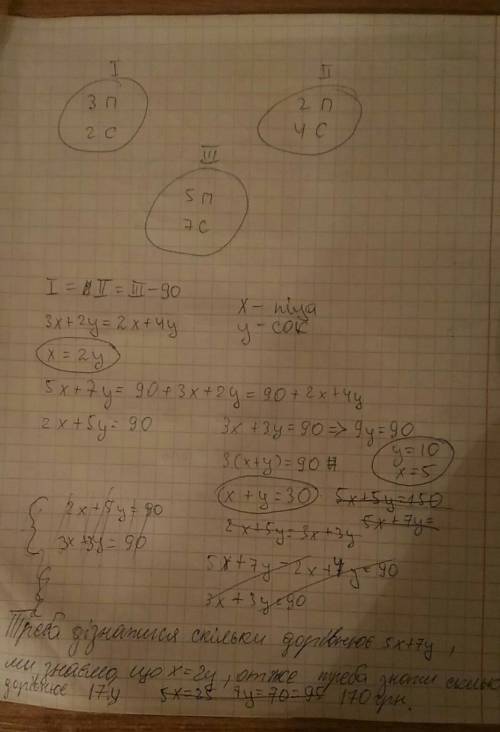 I
3 П
2 С
II
2 П
4 С
III
5 П
7 С
I = II = III - 90
3x + 2y = 2x + 4y
x - піца
y - сок
x = 2y
5x + 7y = 90 + 3x + 2y = 90 + 2x + 4y
2x + 5y = 90
3x + 3y = 90 => 9y = 90
y = 10
x = 5
3(x+y) = 90
x + y = 30
5x + 5y = 150
5x + 7y =
2x + 5y = 90
3x + 3y = 90
2x + 5y = 3x + 3y
5x + 7y - 2x + 4y = 90
3x + 3y = 90
Треба дізнатися скільки дорівнює 5x+7y,
ми знаємо що x=2y, отже треба знати скільки
дорівнює 17y 5x=25 7y=70=95 170 грн.